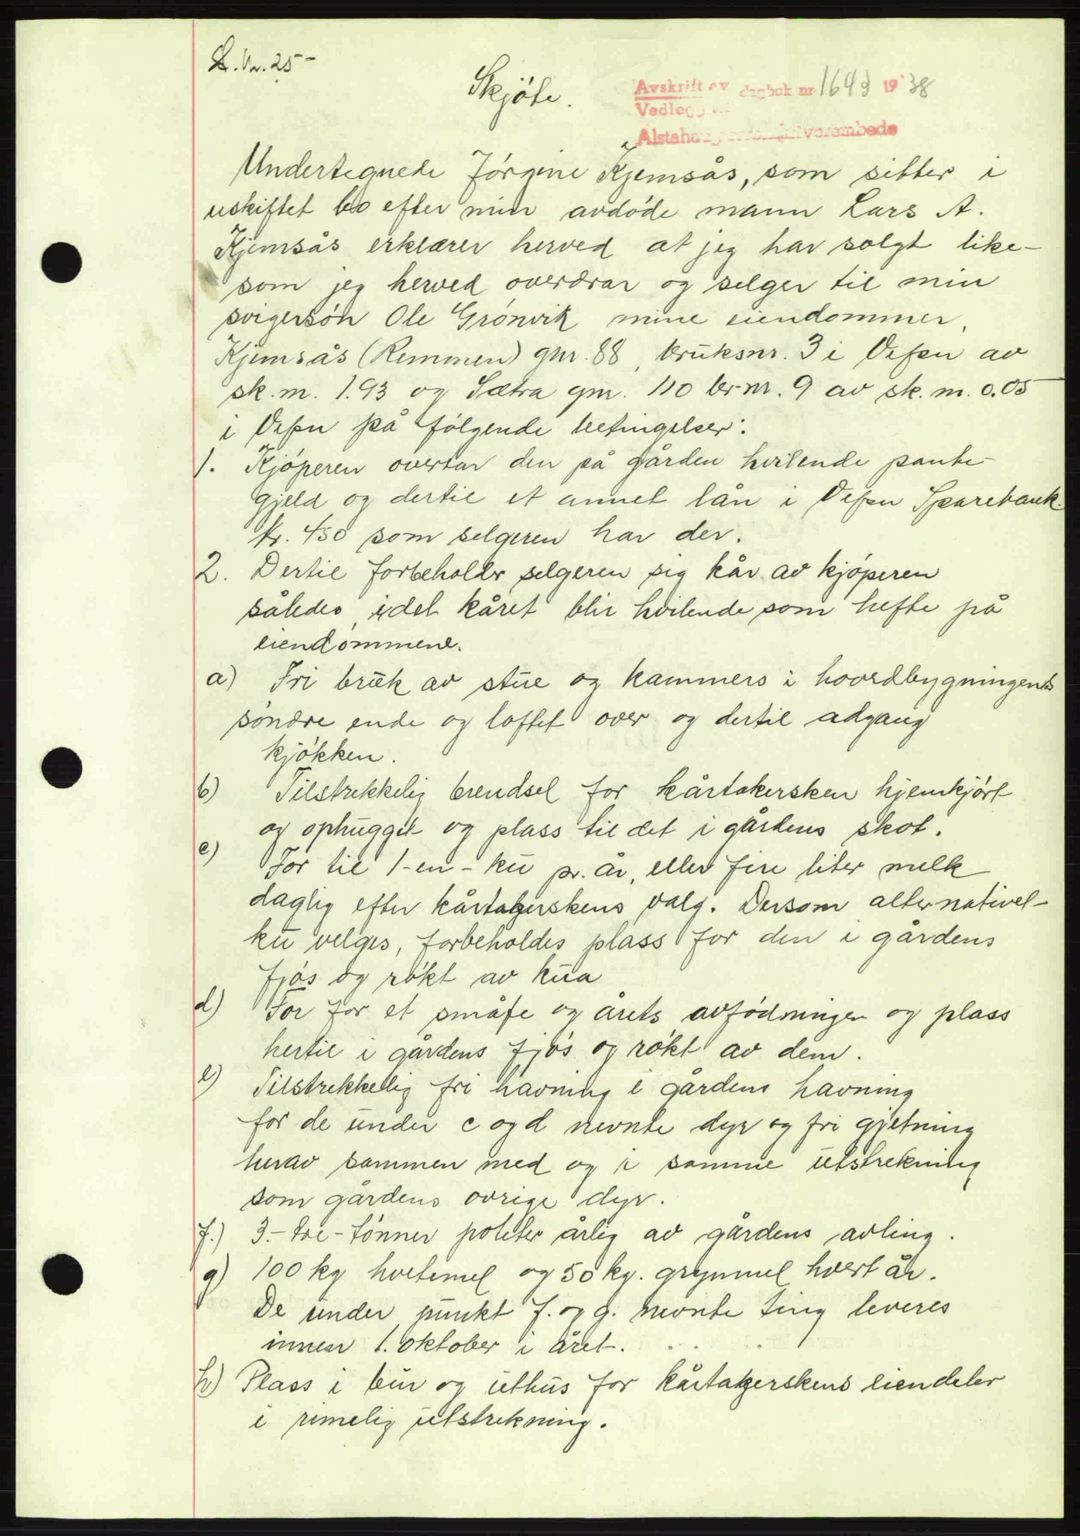 L.nr. 25-
Skjöte.
Avskrift av dagbok nr 1643 1938
Vedlegg
Alstahaug sorenskriverembede
Undertegnede Jørgine Kjemsås, som sitter i
uskiftet bo efter min avdøde mann Lars A.
Kjemsås erklærer herved at jeg har solgt like-
som jeg herved overdrar og selger til min
svigersøn Ole Grönvik mine eiendommer,
Kjemsås (Remmen) gnr. 88, bruksnr. 3 i Vefsn av
sk.m. 1.93 og Sætra gnr. 110 br.nr. 9 av sk.m. 0.05
i Vefsn på følgende betingelser:
1. Kjøperen overtar den på gården hvilende pante-
gjeld og dertil et annet lån i Vefsn Sparebank
kr. 450 som selgeren har der.
2. Dertil forbeholder selgeren sig kår av kjøperen
således idet kåret blir hvilende som hefte på
eiendommene.
a) Fri bruk av stue og kammers i hovedbygningens
søndre ende og loftet over og dertil adgang
kjøkken.
b) Tilstrekkelig brendsel for kårtakersken hjemkjørt
og ophugget og plass til det i gårdens skot.
c) For til 1-en-ku pr. år, eller fire liter melk
daglig efter kårtakerskens valg. Dersom alternativet-
ku velges, forbeholdes plass for den i gårdens
fjøs og røkt av kua
d) For for et småfe og årets avfødninger og plass
hertil i gårdens fjøs og røkt av dem.
e) Tilstrekkelig fri havning i gårdens havning
for de under c og d nevnte dyr og fri gjetning
herav sammen med og i samme utstrekning
som gårdens øvrige dyr.
f.) 3.- tre- tönner poteter årlig av gårdens avling.
g) 100 kg hvetemel og 50 kg. grynmel hvert år.
De under punkt f. og g. nevnte ting leveres
innen 1. oktober i året.
h) Plass i bur og uthus for kårtakerskens eiendeler
i rimelig utstrekning.